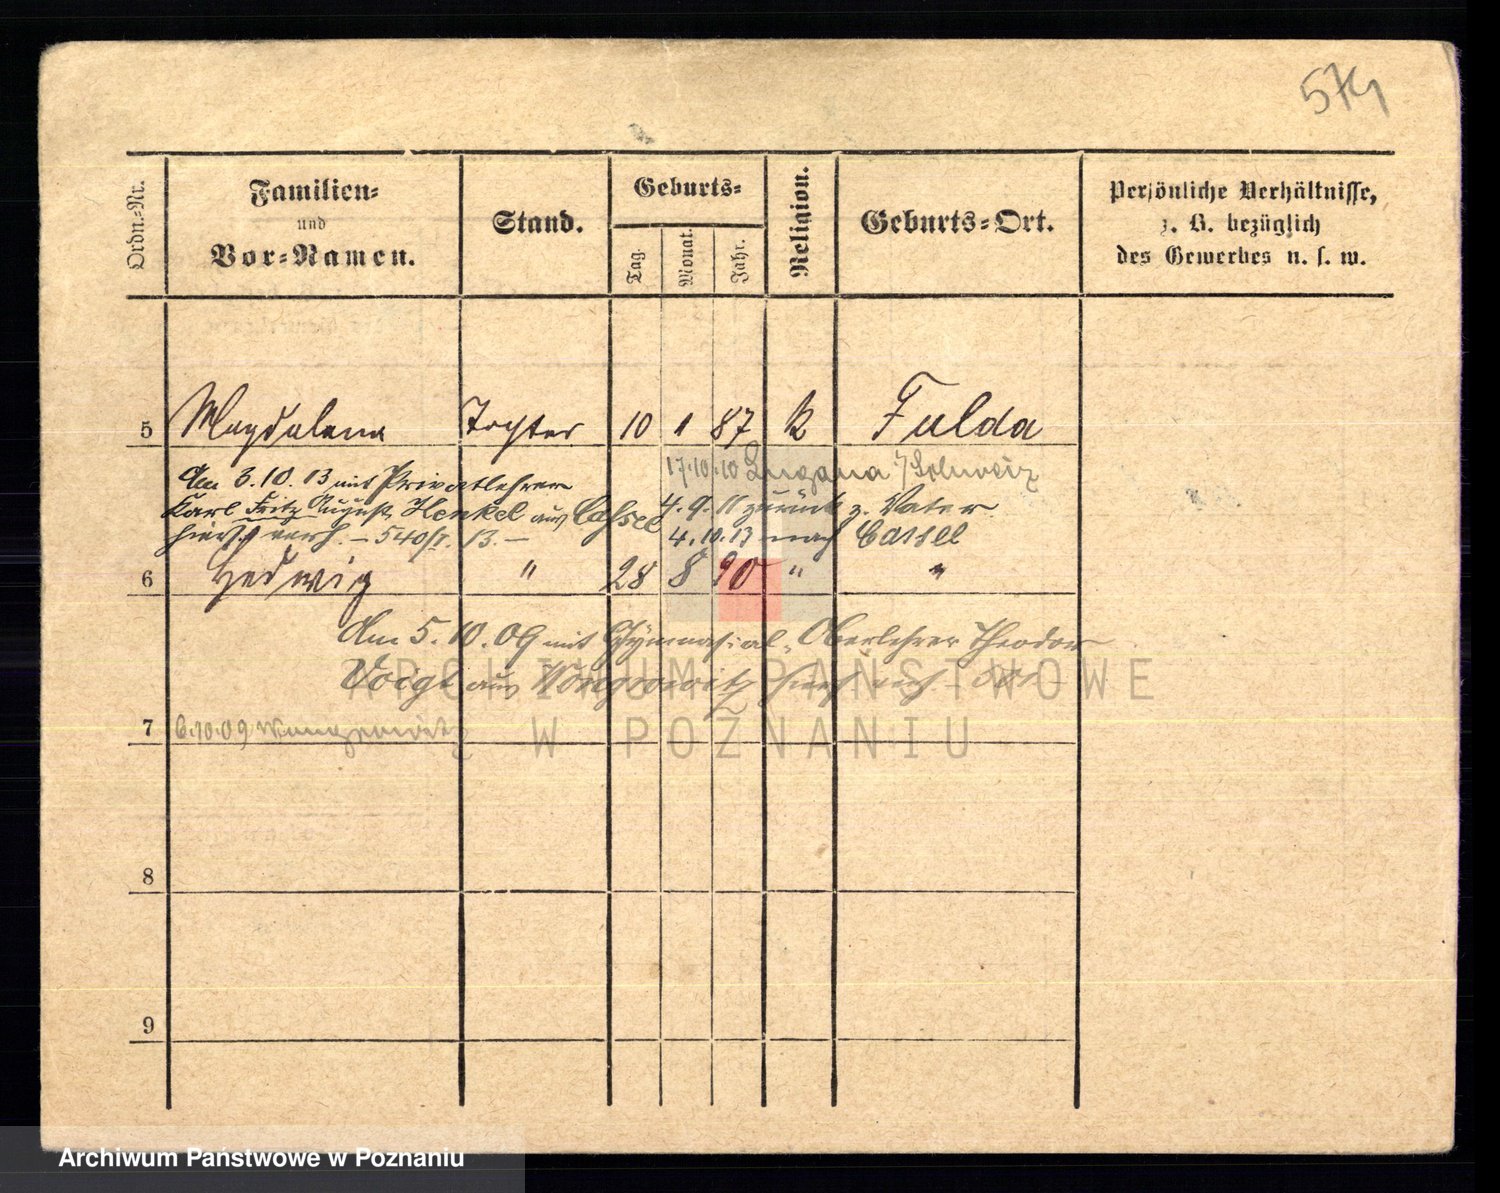 574
Ordn.-Nr.
Familien-
und
Vor-Namen.
Stand.
Geburts-
Tag.
Monat.
Jahr.
Religion.
Geburts-Ort.
Persönliche Verhältnisse,
z. B. bezüglich
des Gewerbes u. s. w.
5 Magdalena Tochter 10 1 87 k Fulda
17.10.10 Lugano i/Schweiz
Am 3.10.13 mit Privatlehrer
Karl Fritz August Henkel aus Cassel
4.9.11 zurück z. Vater
hier verh. – 540/ 13. –
4.10.13 nach Cassel
6 Hedwig " 28 8 90 " "
Am 5.10.09 mit Gymnasial-Oberlehrer Theodor
Voigt aus Wongrowitz hier verh.
7 6.10.09 Wongrowitz
8
9
ARCHIWUM PAŃSTWOWE
W POZNANIU
Archiwum Państwowe w Poznaniu